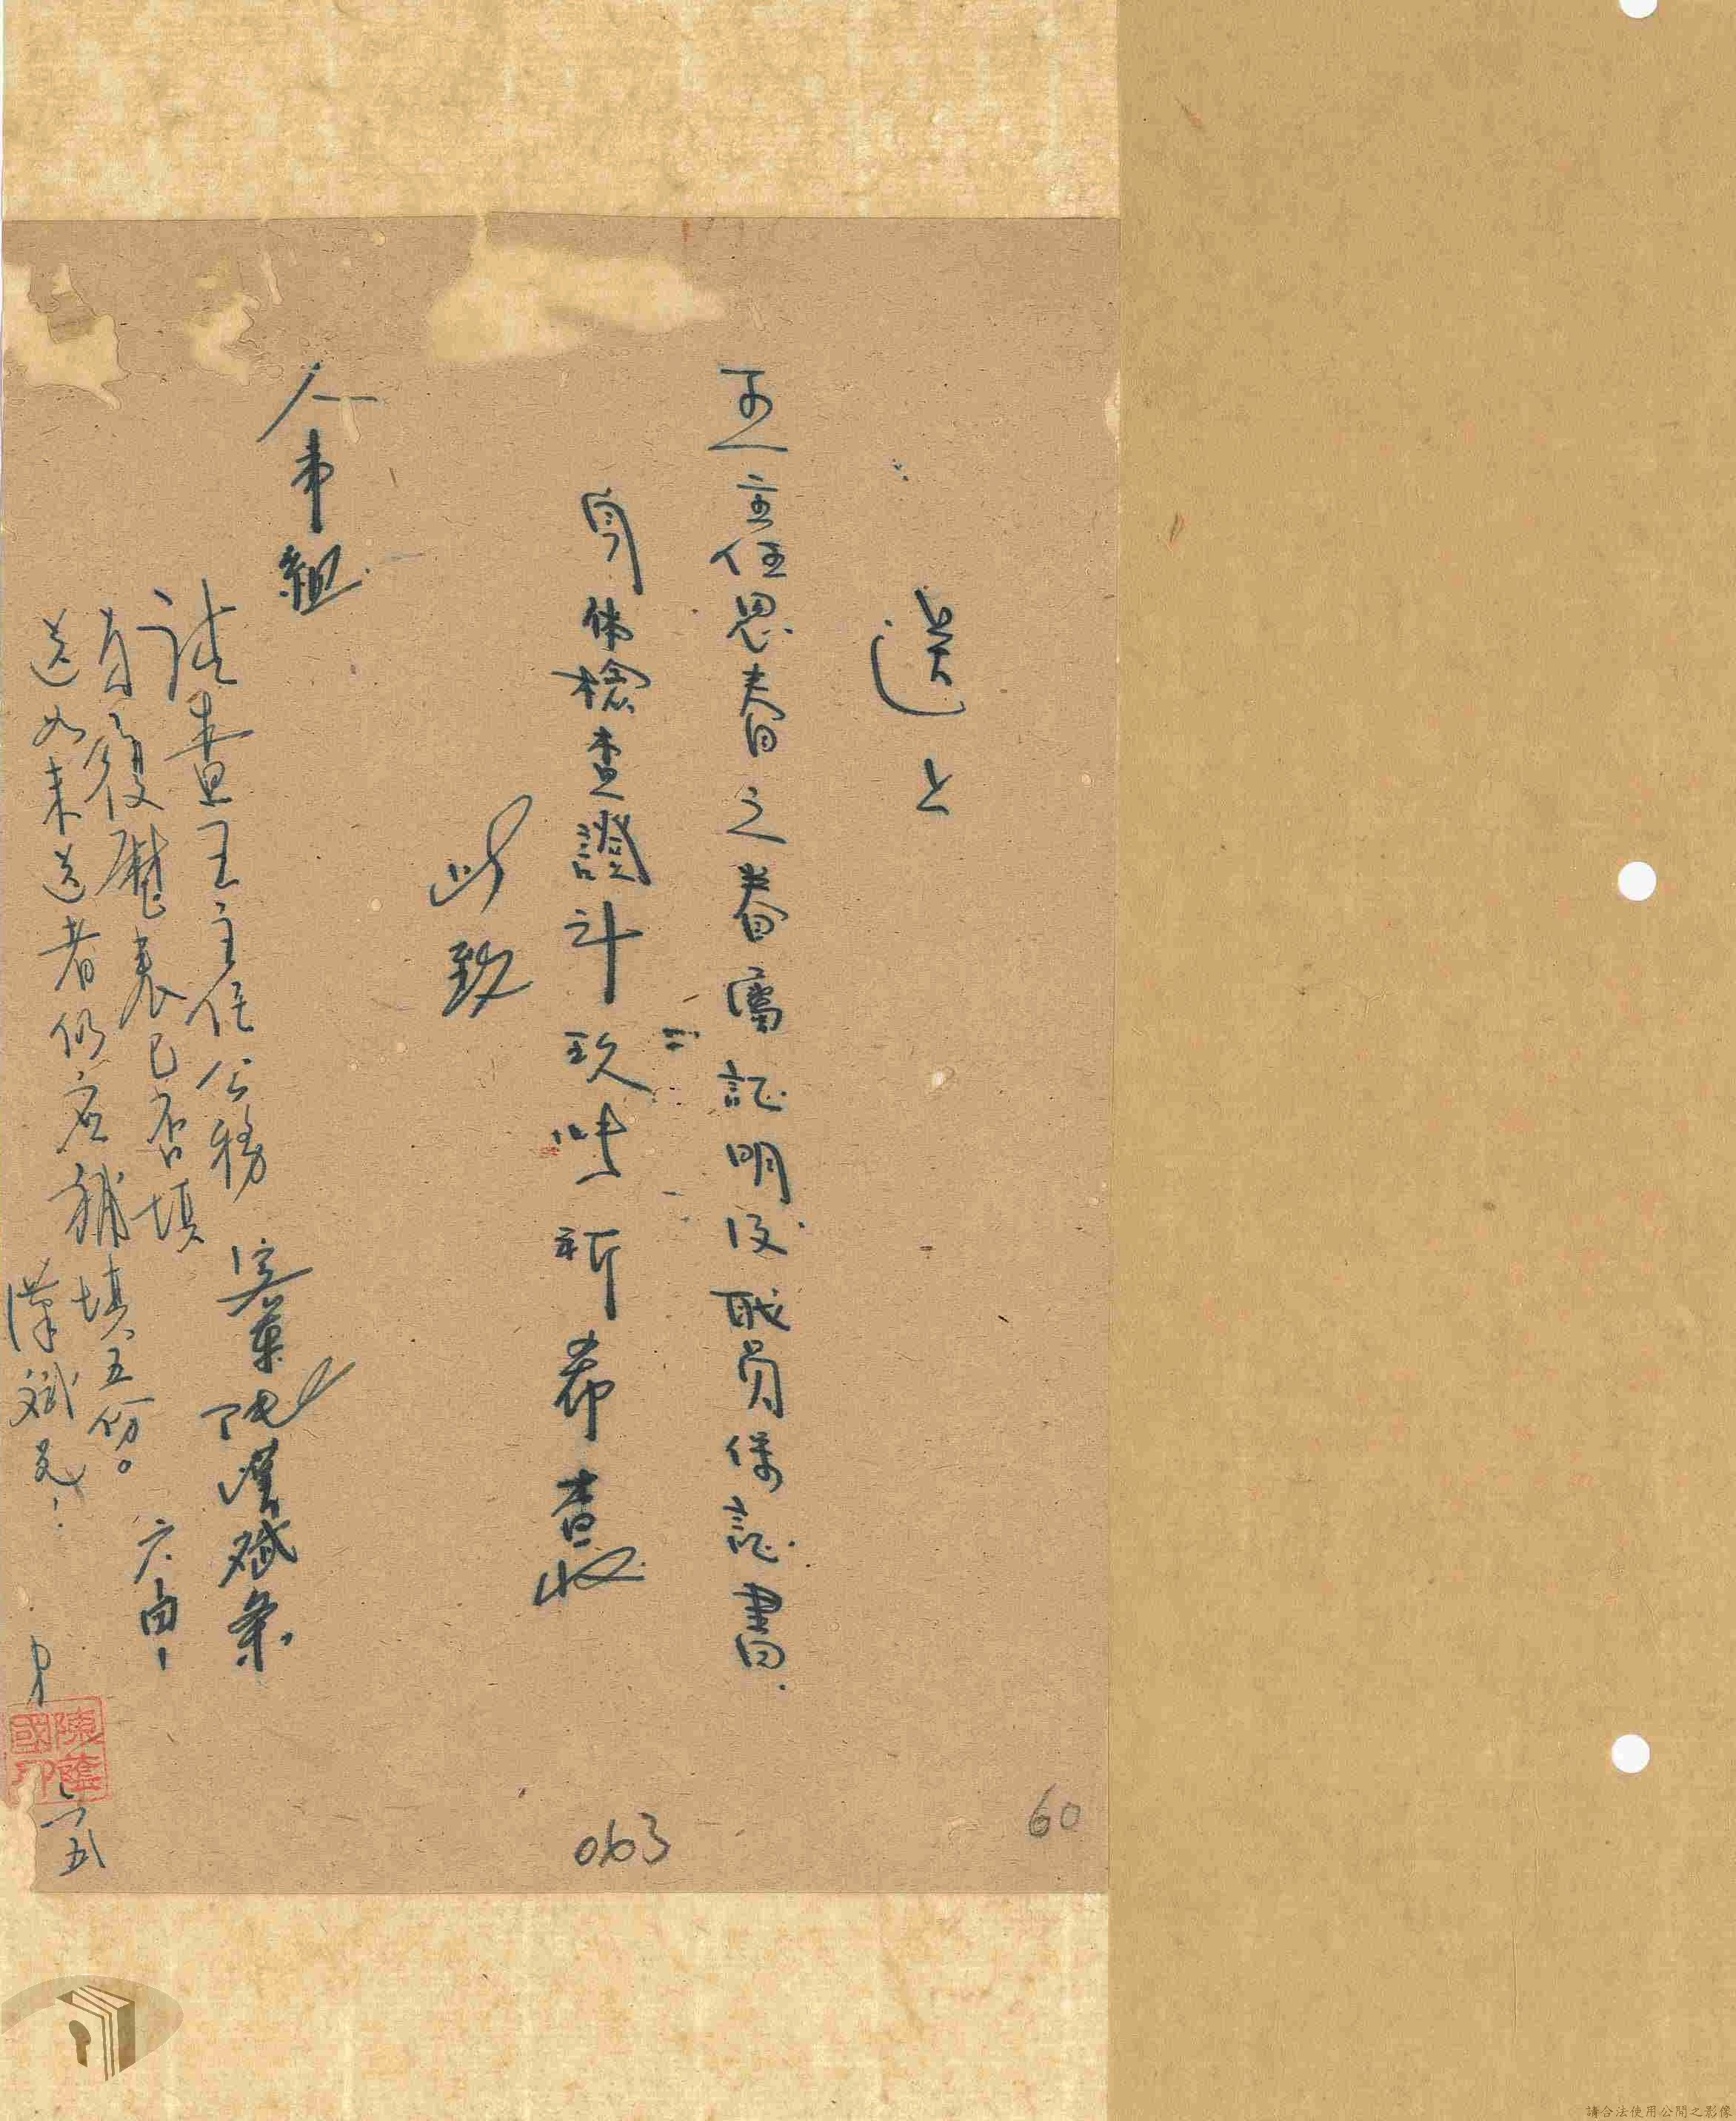 送上
王主任思春之眷屬証明及职員保証書.
身体檢查證計玖吽祈希查收
此致
人事組
陳漢斌条
請查王主任公務
員履歷表已否填
送如未送者仍应補填五份。
漢斌兄:
弟
陳蔭
國印
六五
063
60
請合法使用公開之影像